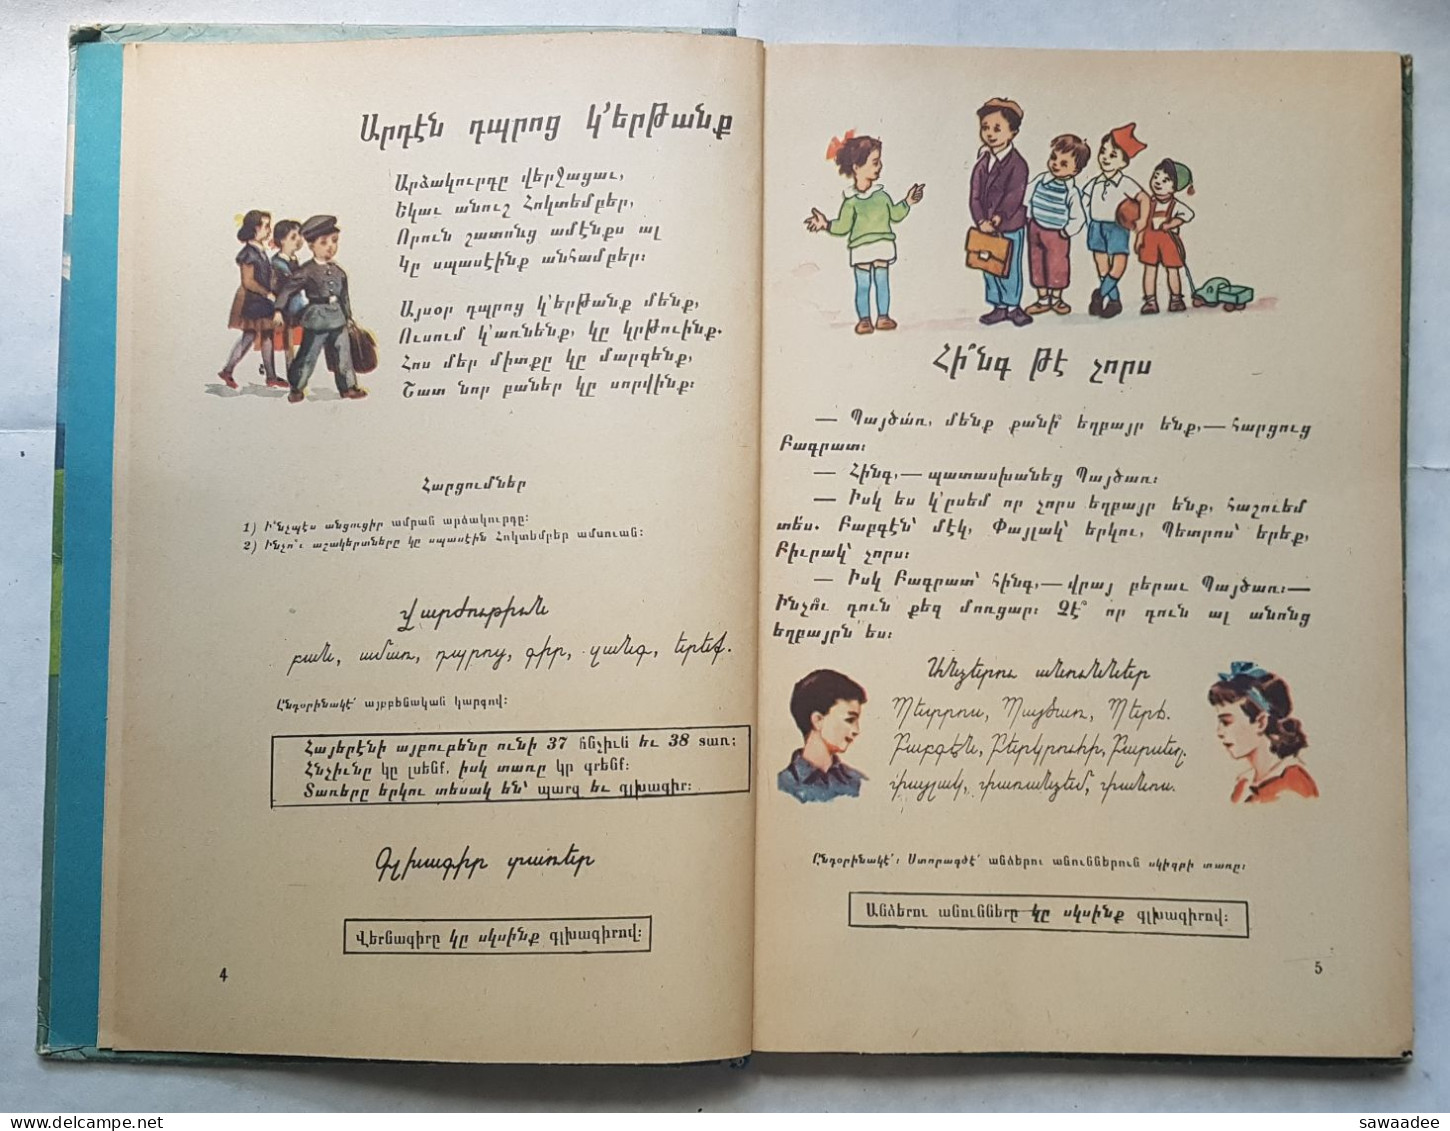 Արդէն դպրոց կ՚երթանք
Արձակուրդը վերջացաւ,
Եկաւ անուշ Հոկտեմբեր,
Որուն շատոնց ամէնքս ալ
Կը սպասէինք անհամբեր։
Այսօր դպրոց կ՚երթանք մենք,
Ուսում կ՚առնենք, կը կրթուինք.
Հոս մեր միտքը կը մարզենք,
Շատ նոր բաներ կը սորվինք։
Հարցումներ
1) Ի՞նչպէս անցուցիր ամրան արձակուրդը։
2) Ինչո՞ւ աշակերտները կը սպասէին Հոկտեմբեր ամսուան։
Վարժութիւն
բան, ամառ, դպրոց, գիր, զանգ, երեք.
Ընդօրինակէ՛ այբբենական կարգով։
Հայերէնի այբուբենը ունի 37 հնչիւն եւ 38 տառ։
Հնչիւնը կը լսենք, իսկ տառը կը գրենք։
Տառերը երկու տեսակ են՝ պարզ եւ գլխագիր։
Գլխագիր տառեր
Վերնագիրը կը սկսինք գլխագիրով։
4
Հի՞նգ թէ չորս
— Պայծա՛ռ, մենք քանի՞ եղբայր ենք,— հարցուց
Բագրատ։
— Հինգ,— պատասխանեց Պայծառ։
— Իսկ ես կ՚ըսեմ որ չորս եղբայր ենք, հաշուեմ
տե՛ս. Բաբգէն՝ մէկ, Փայլակ՝ երկու, Պետրոս՝ երեք,
Բիւրակ՝ չորս։
— Իսկ Բագրատ՝ հինգ,— վրայ բերաւ Պայծառ։—
Ինչո՞ւ դուն քեզ մոռցար։ Չէ՞ որ դուն ալ անոնց
եղբայրն ես։
Անձերու անուններ
Պետրոս, Պայծառ, Պերճ.
Բաբգէն, Բերկրուհի, Բարսեղ.
Փայլակ, Փառանձեմ, Փանոս.
Ընդօրինակէ՛։ Ստորագծէ՛ անձերու անուններուն սկիզբի տառը։
Անձերու անունները կը սկսինք գլխագիրով։
5
sawaadee